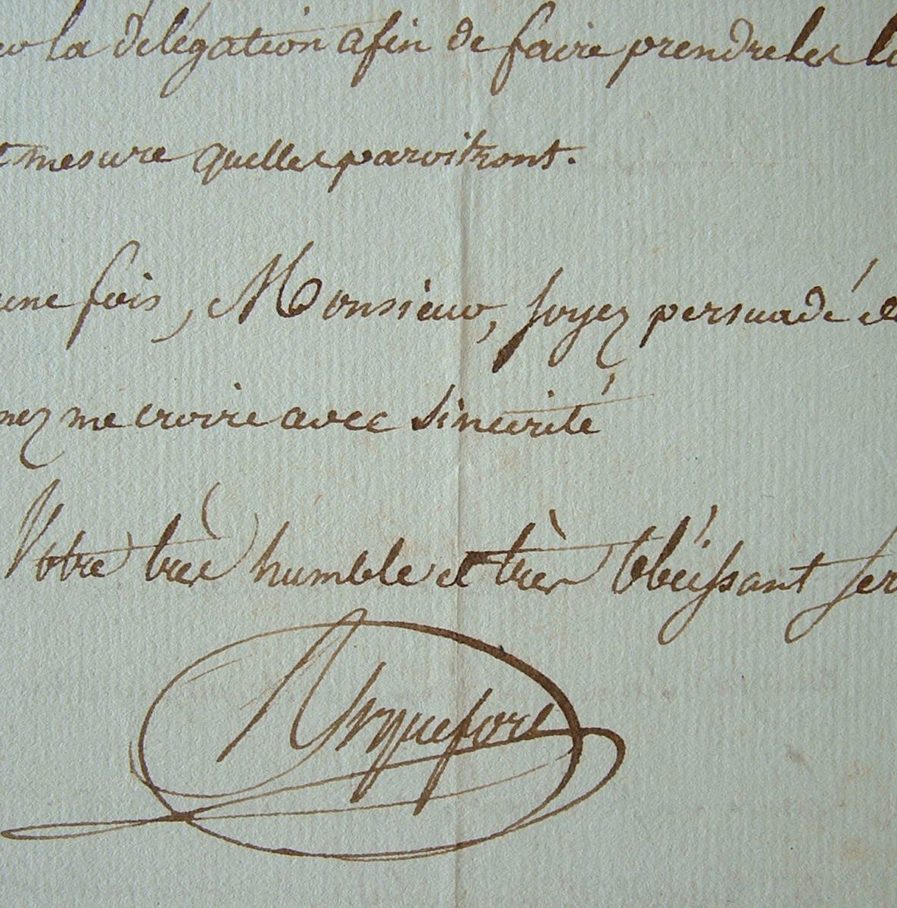 la délégation afin de faire prendre les
mesure quelles paroitront.
une fois, Monsieur, soyez persuadé
nez me croire avec sincérité
Votre très humble et très obéissant ser